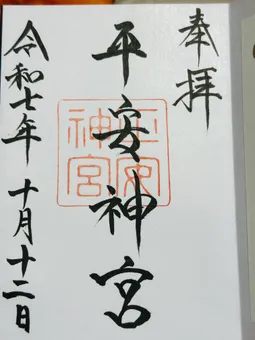 奉拝
平安神宮
平安神宮
令和七年 十月十二日